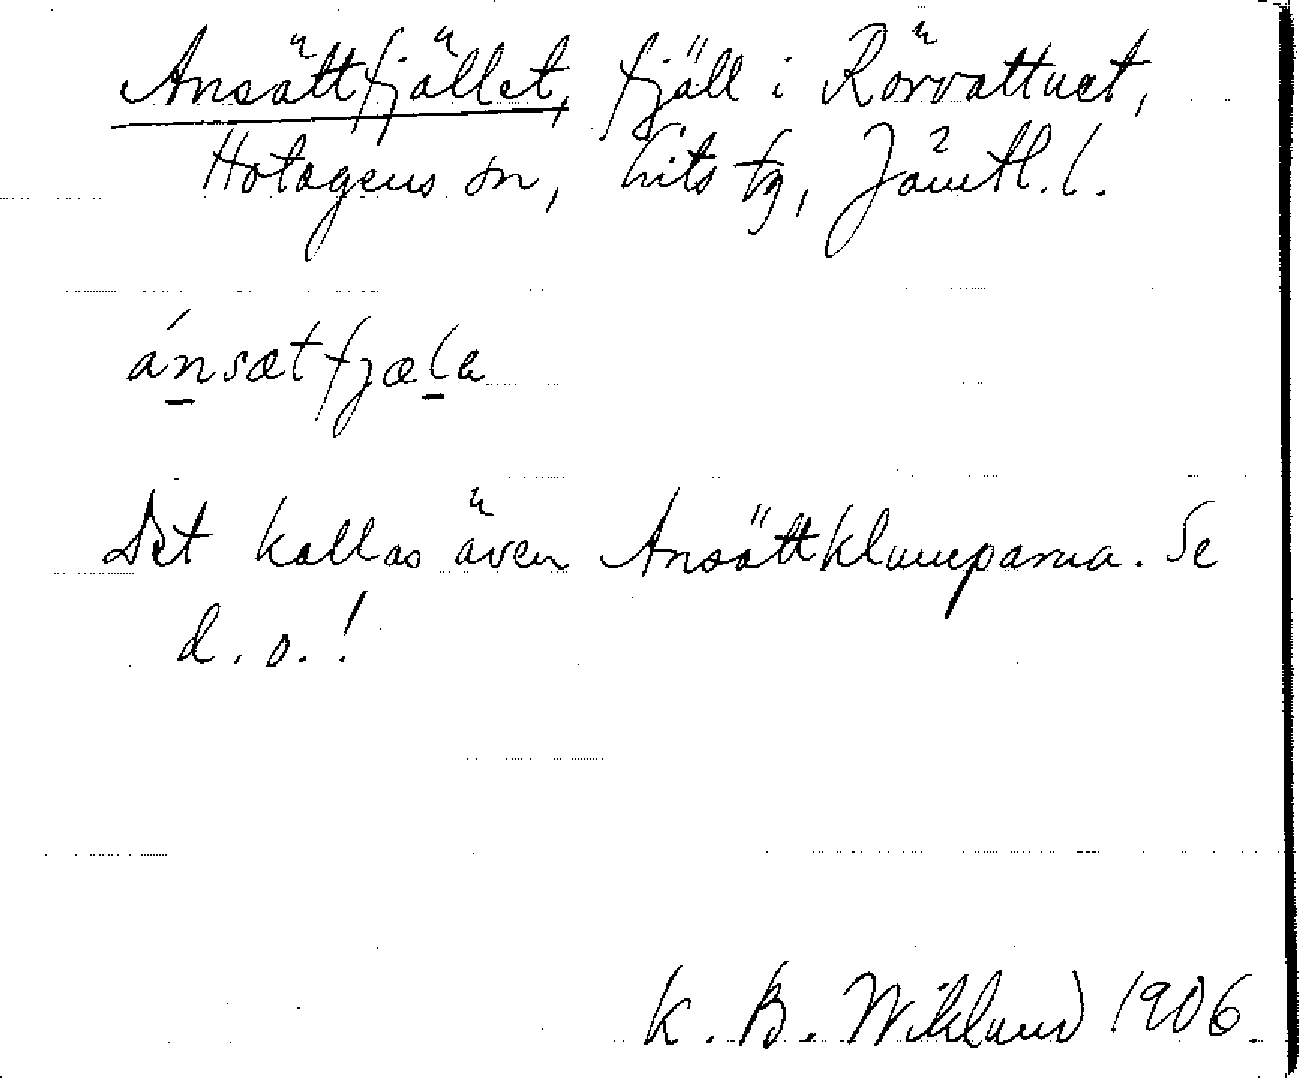 Ansättfjället, fjäll i Rörvattnet,
Hotagens sn, Lits tg, Jämtl. l.
ánsætfjæla
Det kallas även Ansättklumparna. Se
d. o.!
K. B. Wiklund 1906